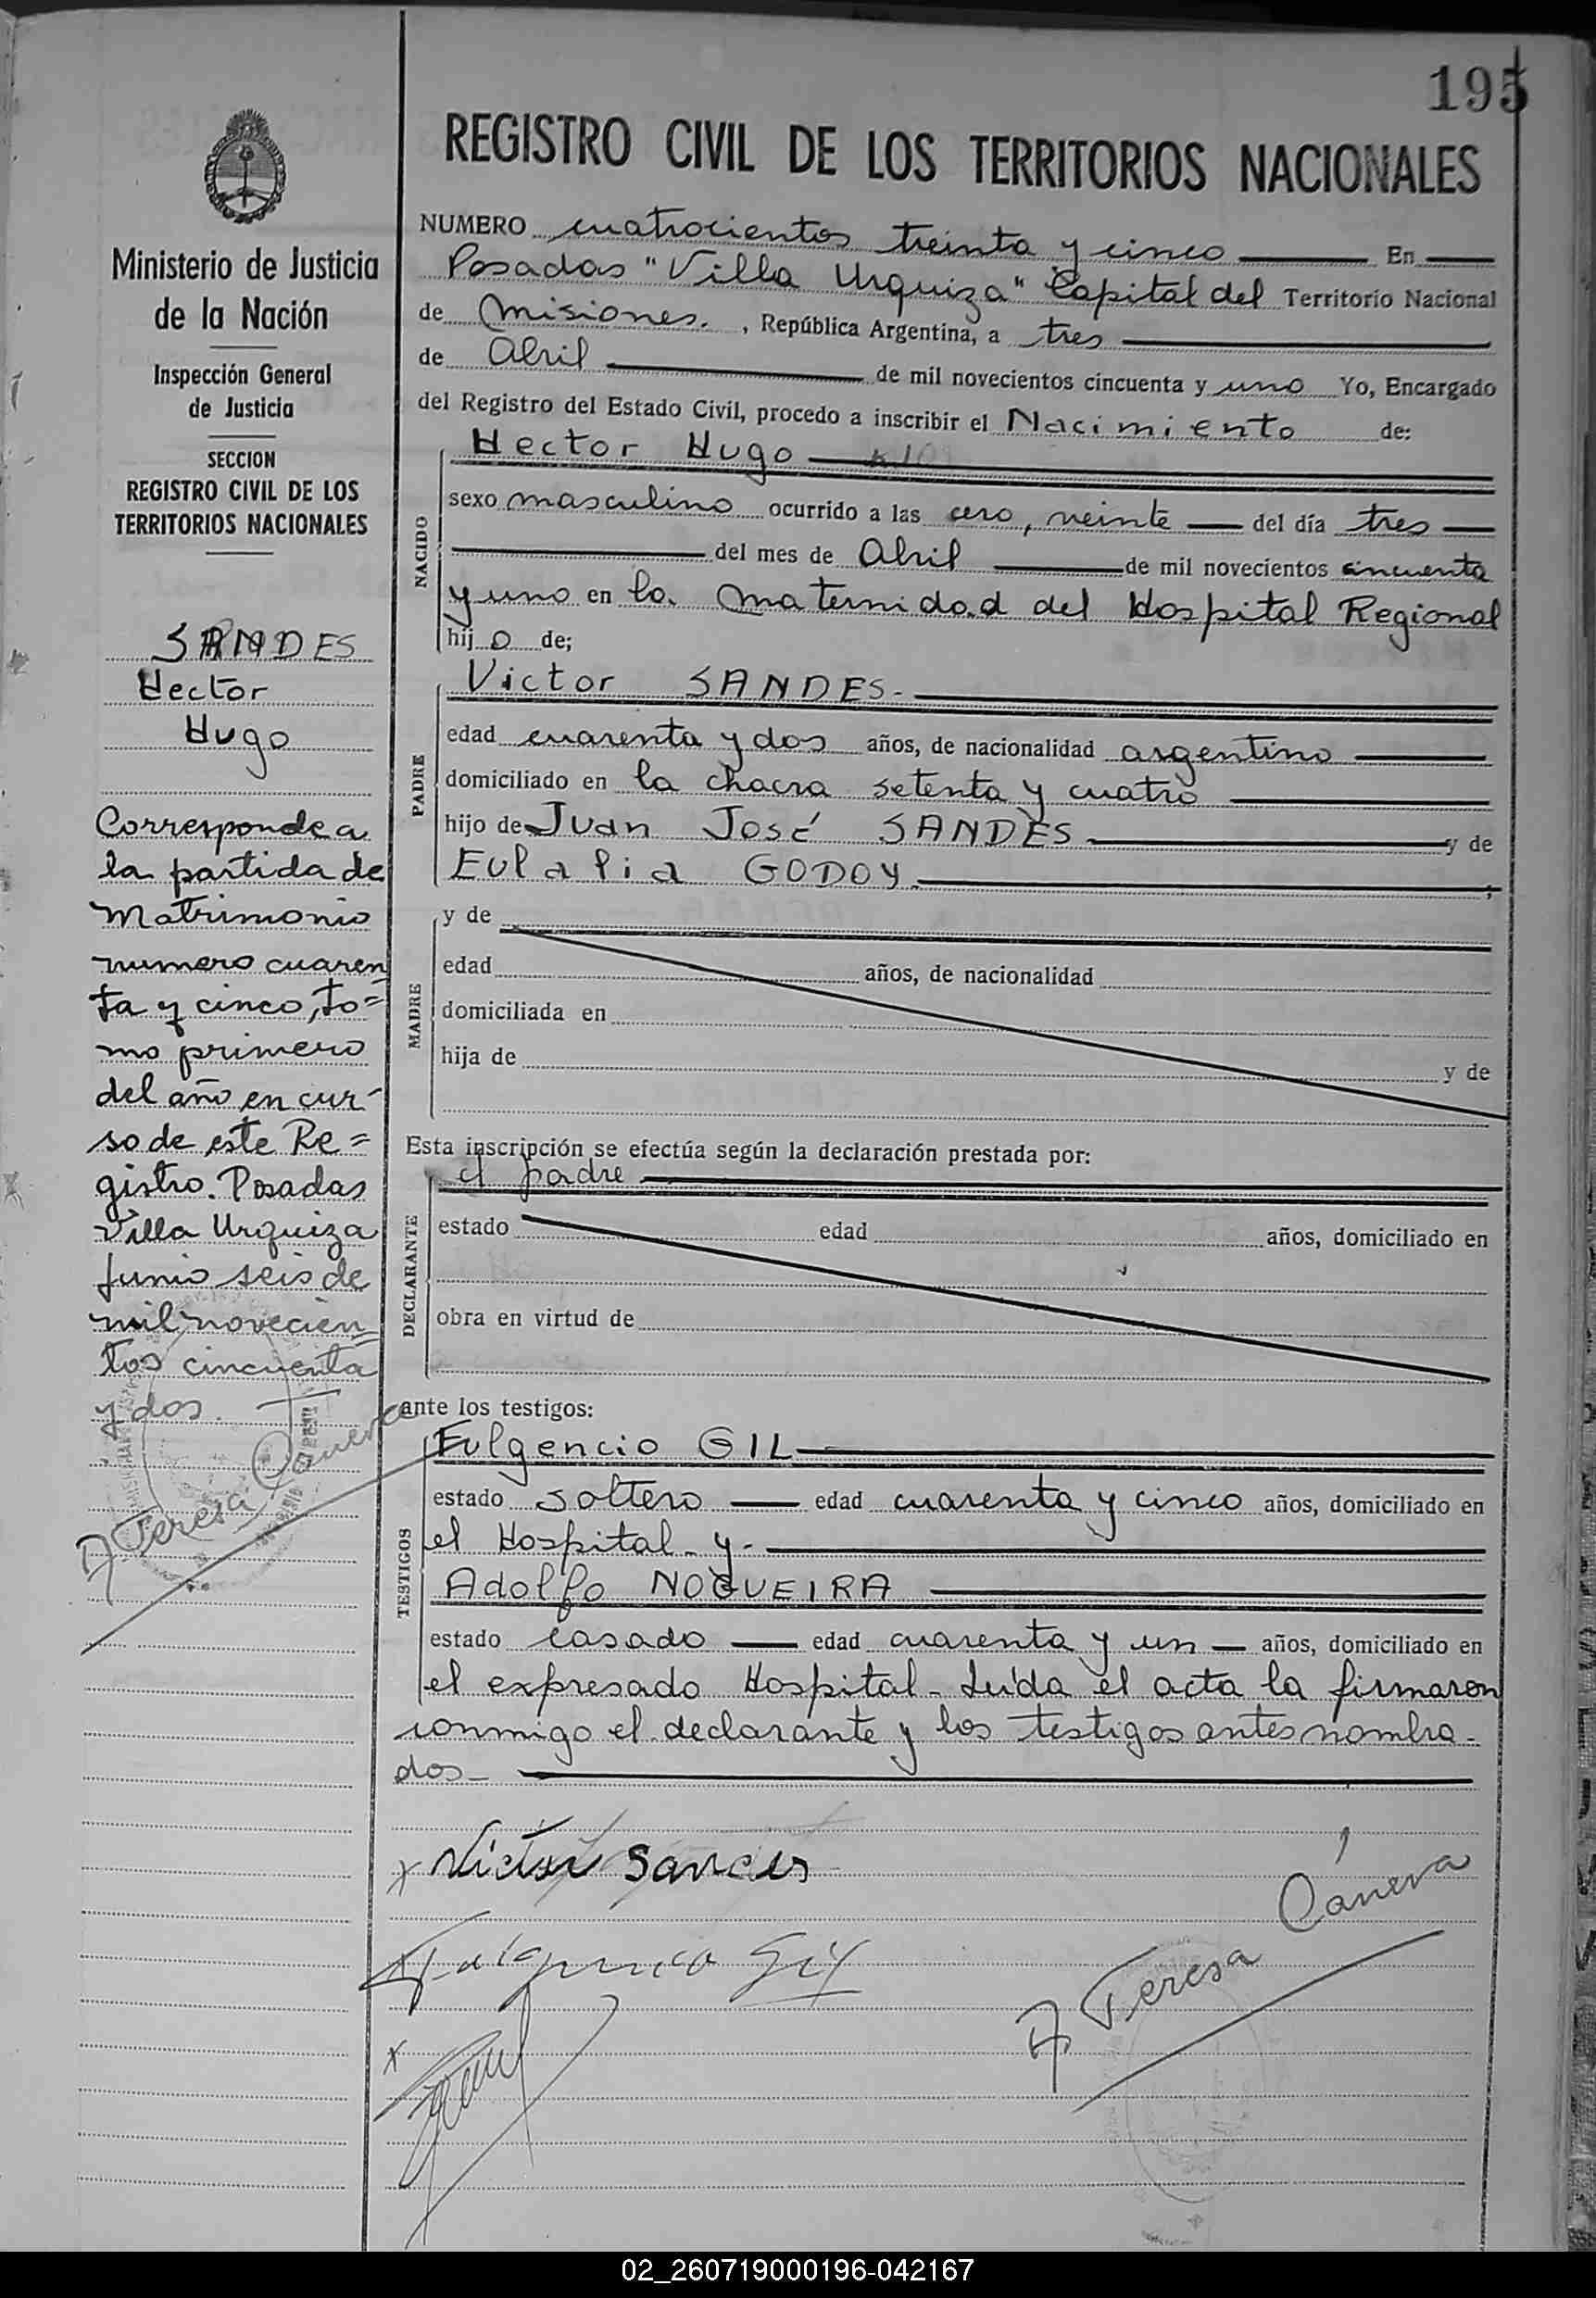 195
REGISTRO CIVIL DE LOS TERRITORIOS NACIONALES
Ministerio de Justicia
de la Nación
Inspección General
de Justicia
SECCION
REGISTRO CIVIL DE LOS
TERRITORIOS NACIONALES
SANDES
Hector
Hugo
Corresponde a
la partida de
Matrimonio
numero cuaren
ta y cinco, to=
mo primero
del año en cur-
so de este Re=
gistro. Posadas
Villa Urquiza
Junio seis de
mil novecien=
tos cincuenta
y dos.
A Teresa Cáneva
NUMERO cuatrocientos treinta y cinco En
Posadas "Villa Urquiza" Capital del Territorio Nacional
de Misiones. , República Argentina, a tres
de Abril de mil novecientos cincuenta y uno Yo, Encargado
del Registro del Estado Civil, procedo a inscribir el Nacimiento de:
NACIDO
Hector Hugo
sexo masculino ocurrido a las cero, veinte del día tres
del mes de Abril de mil novecientos cincuenta
y uno en la maternidad del Hospital Regional
hijo de;
PADRE
Victor SANDES.-
edad cuarenta y dos años, de nacionalidad argentino
domiciliado en la chacra setenta y cuatro
hijo de Juan José SANDES y de
Eulalia GODOY. ;
MADRE
y de
edad años, de nacionalidad
domiciliada en
hija de y de
Esta inscripción se efectúa según la declaración prestada por:
DECLARANTE
el padre
estado edad años, domiciliado en
obra en virtud de
ante los testigos:
TESTIGOS
Fulgencio GIL
estado soltero edad cuarenta y cinco años, domiciliado en
el Hospital - y.-
Adolfo NOGUEIRA
estado casado edad cuarenta y un años, domiciliado en
el expresado Hospital - Leída el acta la firmaron
conmigo el declarante y los testigos antes nombra-
dos -
x Victor Sandes
Fulgencio Gil
x
A Teresa Cáneva
02_260719000196-042167